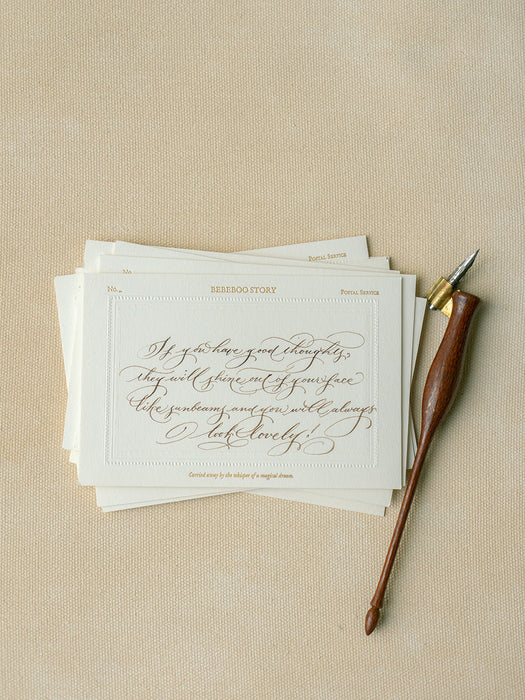 Postal Service
No.
BEBEBOO STORY
Postal Service
If you have good thoughts,
they will shine out of your face
like sunbeams and you will always
look lovely!
Carried away by the whisper of a magical dream.